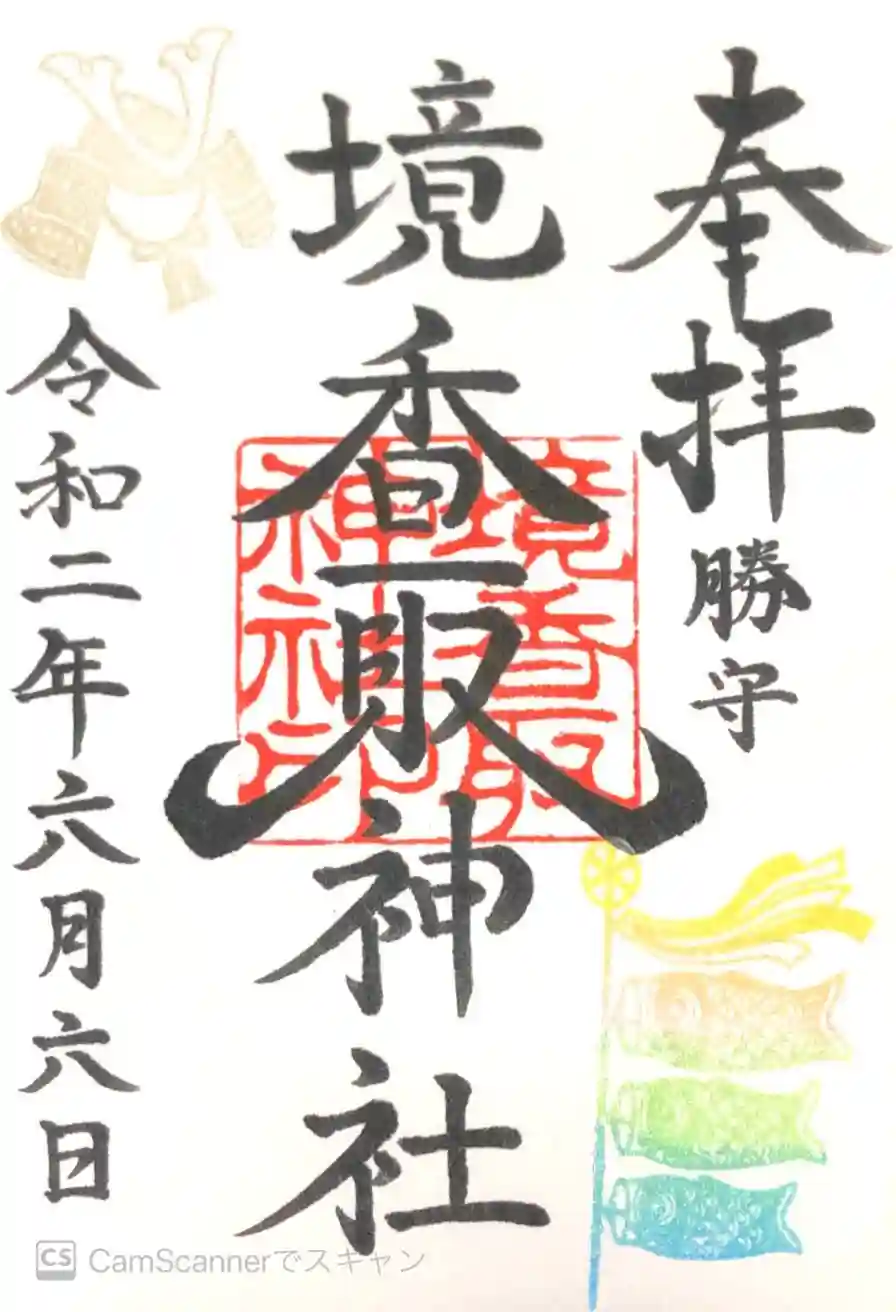 奉拝
勝守
境香取神社
境香取神社神印
令和二年六月六日
CS CamScannerでスキャン